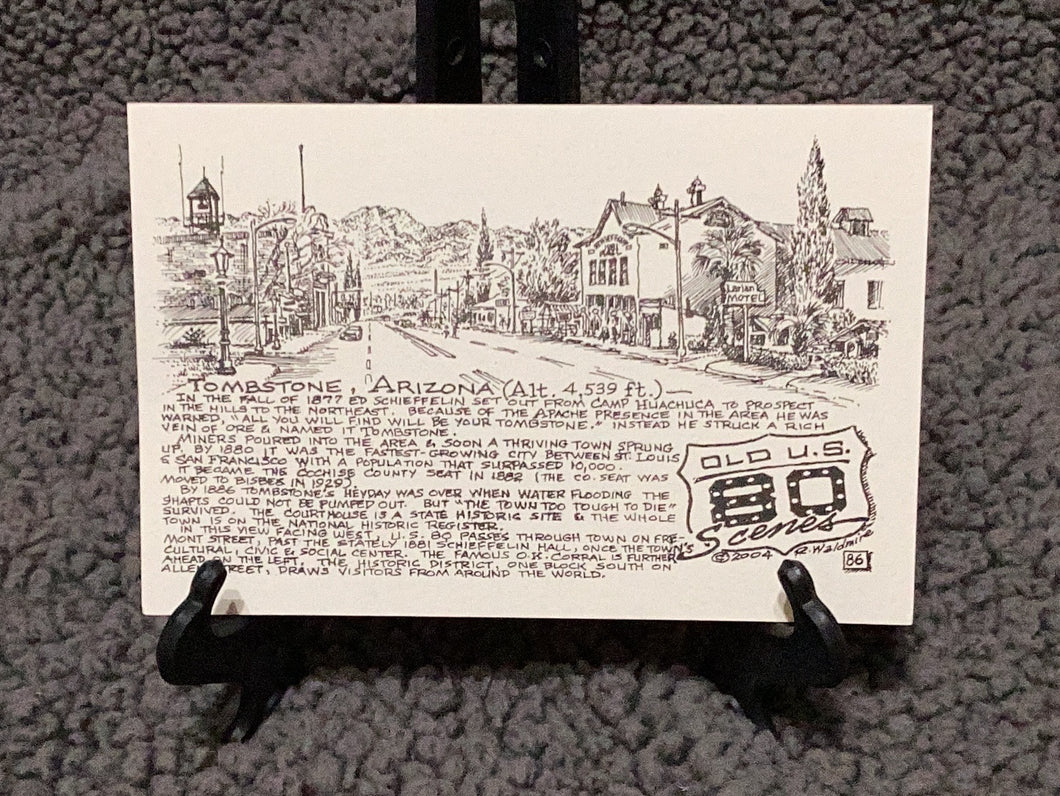 Larian
MOTEL
TOMBSTONE, ARIZONA (Alt. 4,539 ft.)
IN THE FALL OF 1877 ED SCHIEFFELIN SET OUT FROM CAMP HUACHUCA TO PROSPECT
IN THE HILLS TO THE NORTHEAST. BECAUSE OF THE APACHE PRESENCE IN THE AREA HE WAS
WARNED, "ALL YOU WILL FIND WILL BE YOUR TOMBSTONE." INSTEAD HE STRUCK A RICH
VEIN OF ORE & NAMED IT TOMBSTONE.
MINERS POURED INTO THE AREA & SOON A THRIVING TOWN SPRUNG
UP. BY 1880 IT WAS THE FASTEST-GROWING CITY BETWEEN ST. LOUIS
& SAN FRANCISCO WITH A POPULATION THAT SURPASSED 10,000.
IT BECAME THE COCHISE COUNTY SEAT IN 1882 (THE CO. SEAT WAS
MOVED TO BISBEE IN 1929).
BY 1886 TOMBSTONE'S HEYDAY WAS OVER WHEN WATER FLOODING THE
SHAFTS COULD NOT BE PUMPED OUT. BUT "THE TOWN TOO TOUGH TO DIE"
SURVIVED. THE COURTHOUSE IS A STATE HISTORIC SITE & THE WHOLE
TOWN IS ON THE NATIONAL HISTORIC REGISTER.
IN THIS VIEW, FACING WEST, U.S. 80 PASSES THROUGH TOWN ON FRE-
MONT STREET, PAST THE STATELY 1881 SCHIEFFELIN HALL, ONCE THE TOWN'S
CULTURAL, CIVIC & SOCIAL CENTER. THE FAMOUS O.K. CORRAL IS FURTHER
AHEAD ON THE LEFT. THE HISTORIC DISTRICT, ONE BLOCK SOUTH ON
ALLEN STREET, DRAWS VISITORS FROM AROUND THE WORLD.
OLD U.S.
80
Scenes
©2004 R. Waldmire
86